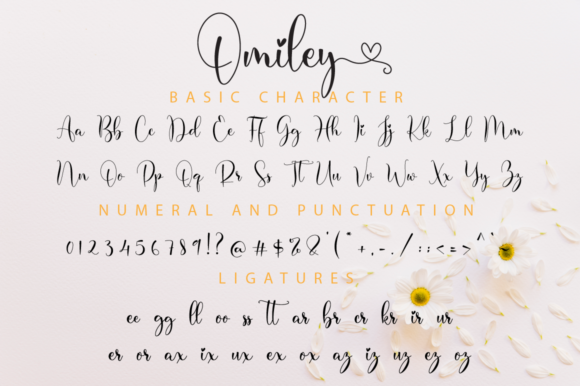 Omiley
BASIC CHARACTER
Aa Bb Cc Dd Ee Ff Gg Hh Ii Jj Kk Ll Mm
Nn Oo Pp Qq Rr Ss Tt Uu Vv Ww Xx Yy Zz
NUMERAL AND PUNCTUATION
0123456789!?@#$%&'("+,-./:;<=>^`~
LIGATURES
ee gg ll oo ss tt ar br cr kr ir ur
er or ax ix ux ex ox az iz uz ez oz